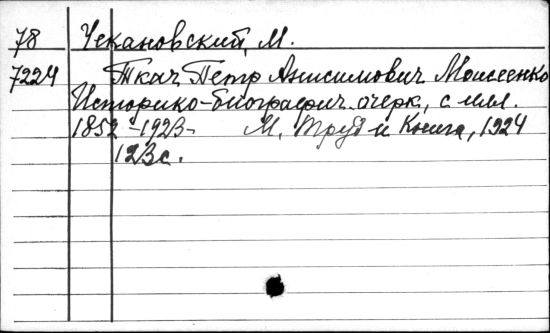 78 Чекановский, М.
7224 Ткач Петр Анисимович Моисеенко
Историко-биографич. очерк, с илл.
1852-1923- М. Труд и Книга, 1924
123 с.